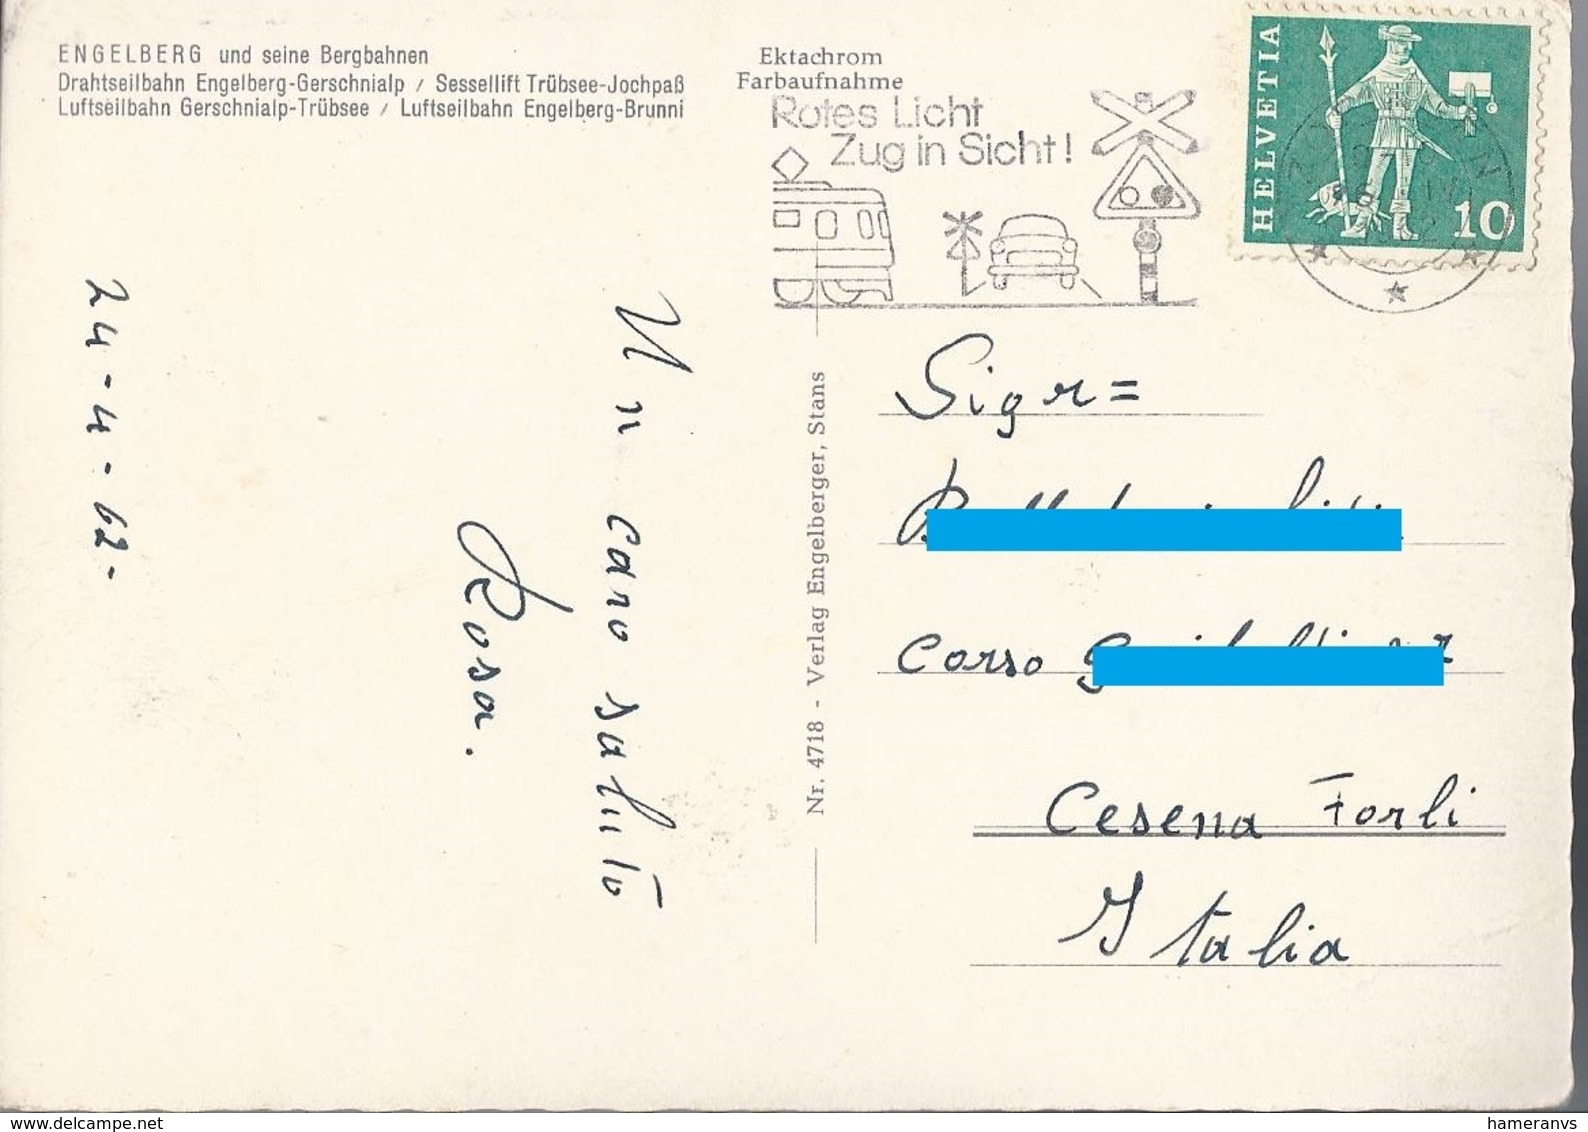 ENGELBERG und seine Bergbahnen
Drahtseilbahn Engelberg-Gerschnialp / Sessellift Trübsee-Jochpaß
Luftseilbahn Gerschnialp-Trübsee / Luftseilbahn Engelberg-Brunni
Ektachrom
Farbaufnahme
Rotes Licht
Zug in Sicht!
HELVETIA
10
24-4-62-
Un caro saluto
Rosa.
Nr. 4718 - Verlag Engelberger, Stans
Sigr=
Corso
Cesena Forli
Italia
www.delcampe.net
hameranvs